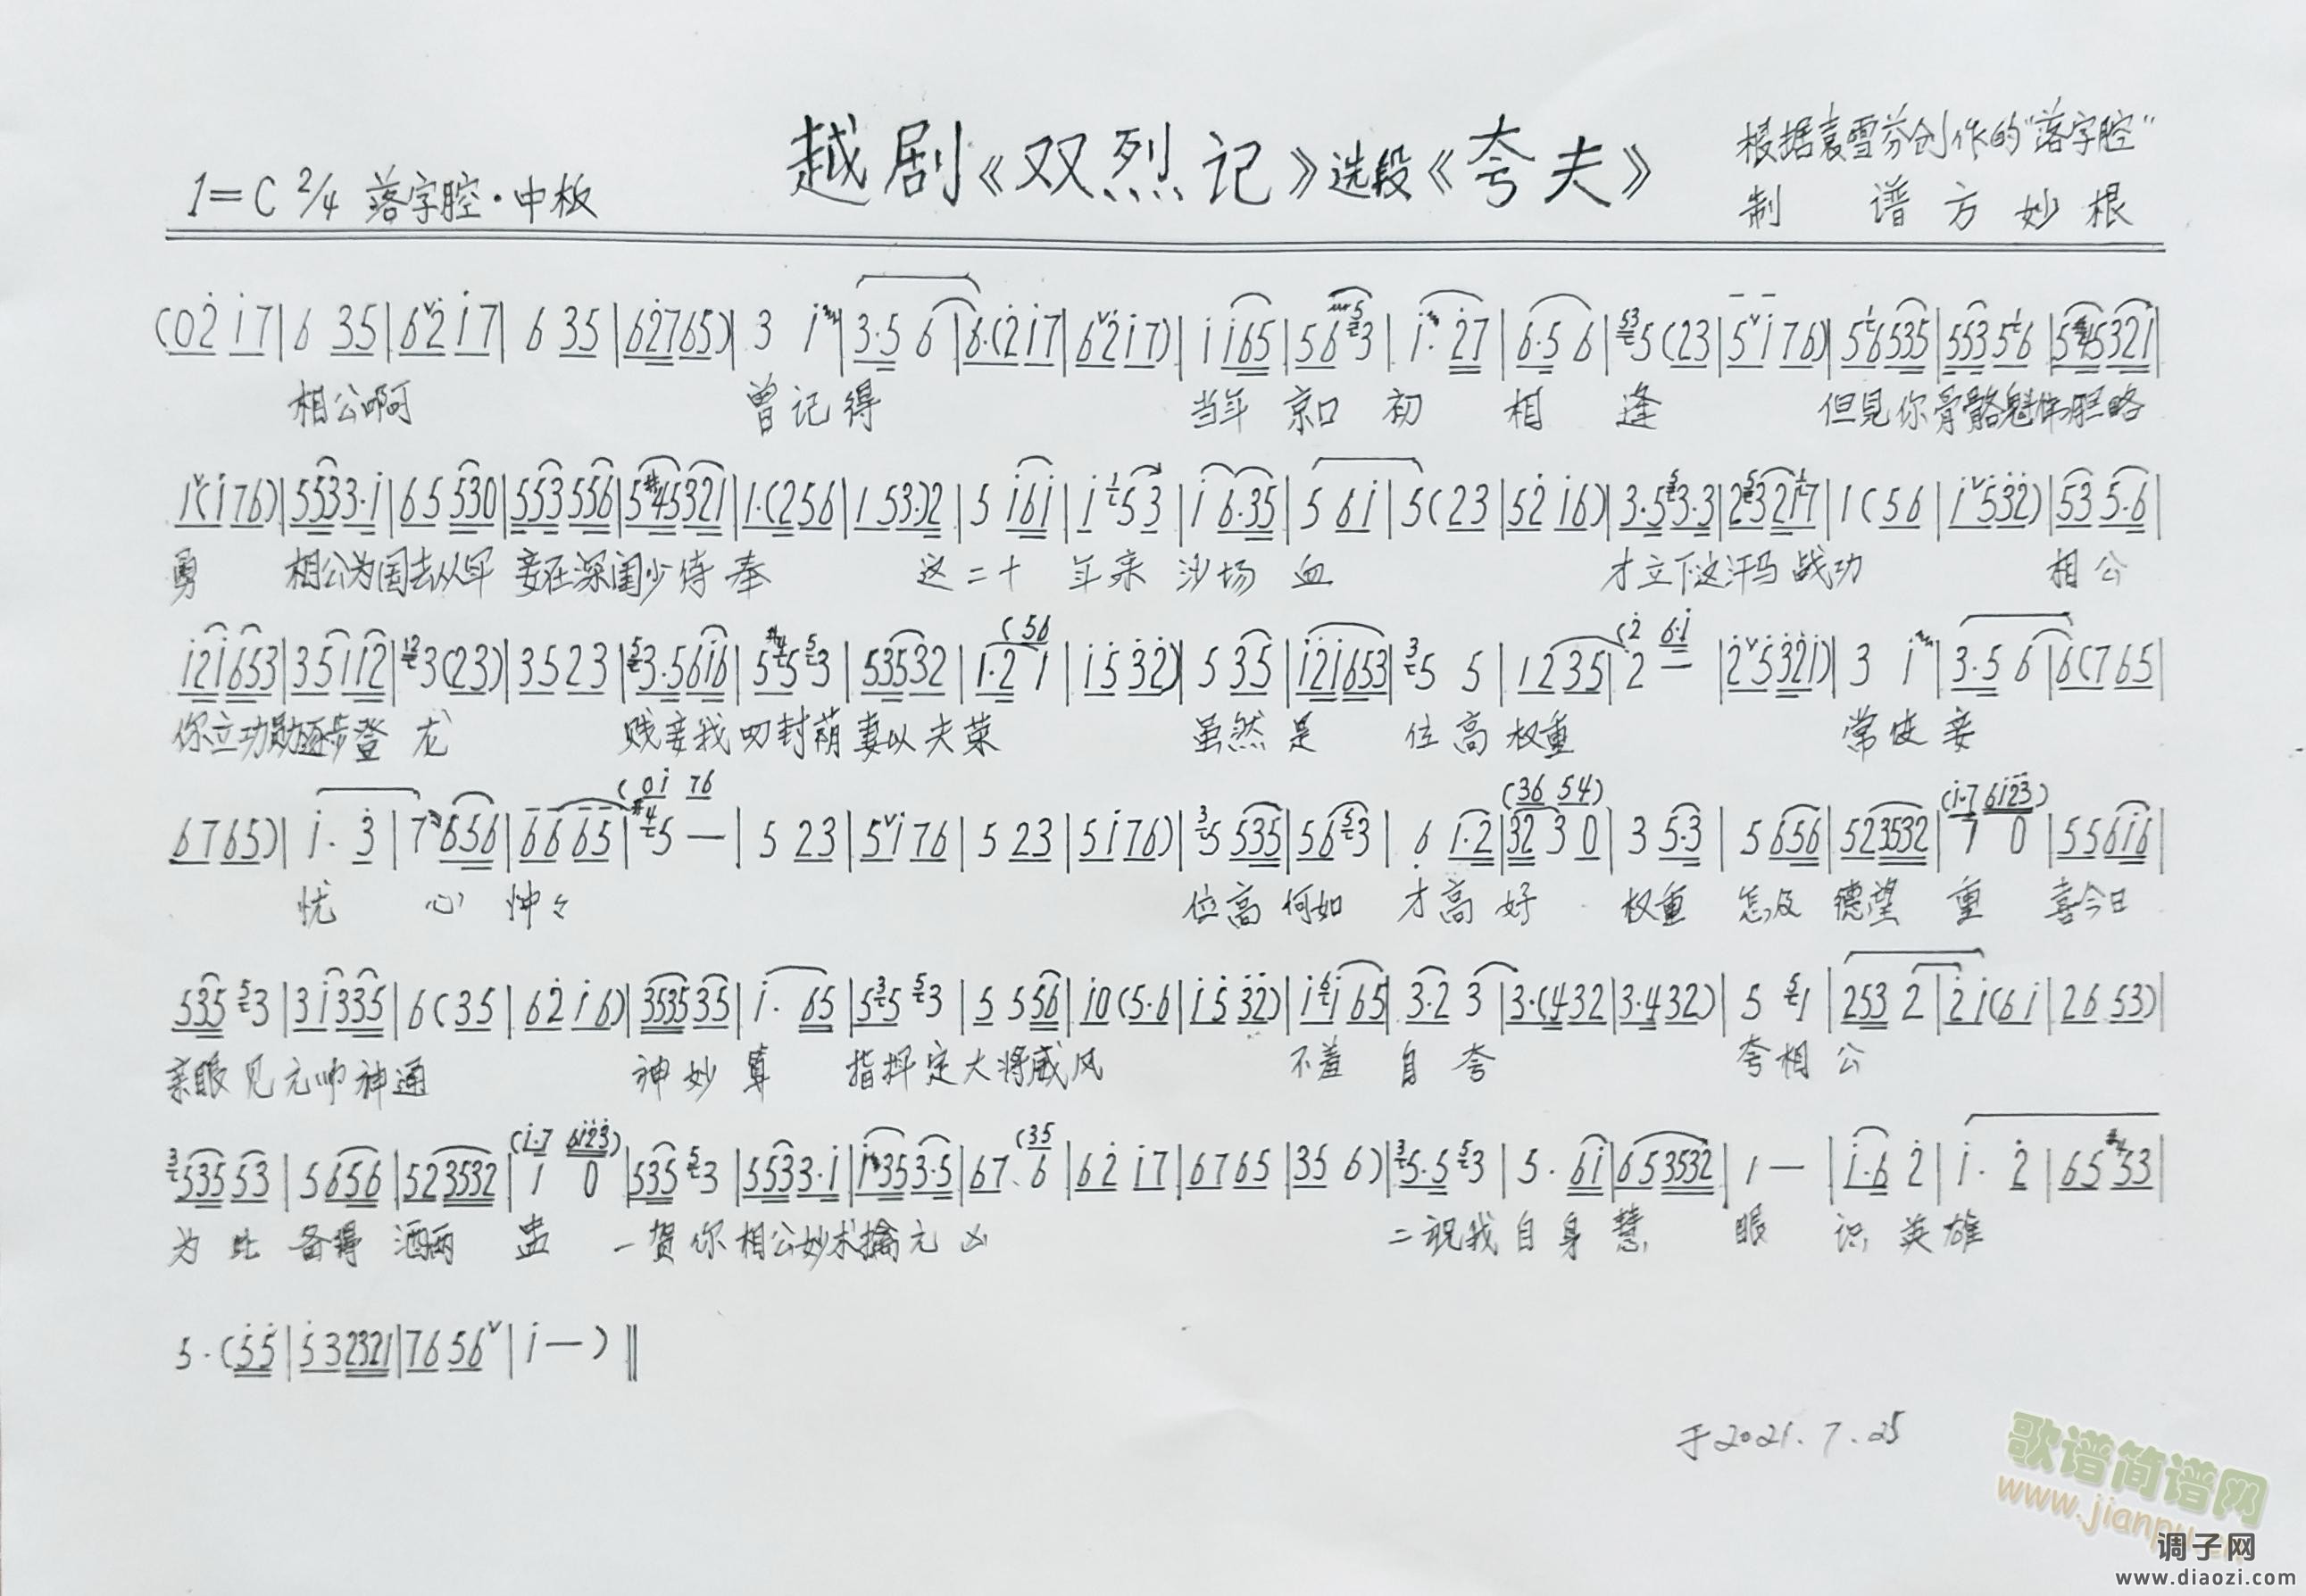 越剧《双烈记》选段《夸夫》
根据袁雪芬创作的"落字腔"
1=C 2/4 落字腔·中板
制 谱 方 妙 根
(02 i7| 6 35|62 i7| 6 35|62765)| 3 i|3·5 6|6·(2i7|62i7)|i i65|56 3|i· 27|6·5 6|5(23|5i76)|56535|55356|545321|
相公啊 曾记得 当年 京口 初 相 逢 但見你骨骼魁伟胆略
1(i76)|5533·i|65 530|553556|5#45321|1·(256|1 53·)2|5 i6i|i 53|i 6·35|5 6i|5(23|52 i6)|3·53·3|232i7|1(56|i532)|53 5·6|
勇 相公为国去从军 妾在深闺少侍奉 这二十 年来 沙场 血 才立下这汗马战功 相公
(56 (2 6·i
i2i653|35i12|3(23)|3523|3·56i6|55 3|53532|1·2 1|i5 32)|5 35|i2i653|5 5|1235|2 —|25 32i)|3 i|3·5 6|6(765|
你立功勋逐步登 龙 贱妾我叨封荫妻以夫荣 虽然是 位高权重 常使妾
(0i 76 (36 54) (i·7 6i23)
6765)|i· 3|7 656|66 65|5 —|5 23|5i76|5 23|5i76)|5 535|56 3|6 1·2|32 3 0|3 5·3|5 656|523532|7 0|556i6|
忧 心 忡々 位高何如 才高好 权重 怎及 德望 重 喜今日
535 3|3i335|6(35|62i6)|353535|i· 65|55 3|5 556|i0(5·6|i532)|i i65|3·2 3|3·(432|3·432)|5 1|253 2|2i(6i|26 53)|
亲眼见元帅神通 神妙算 指挥定大将威风 不羞 自夸 夸相公
(i·7 6i23) (35
53553|5656|523532|1 0|535 3|5533·i|i353·5|67 6|62 i7|6765|35 6)|5·5 3|5· 6i|653532|1 —|i·6 2|i· 2|65#453|
为此 备得 酒两 盅 一贺你相公妙术擒元凶 二祝我自身慧 眼 识 英雄
5·(55|532321|7656|i—)‖
于2021.7.25
歌谱简谱网
调子网
www.diaozi.com